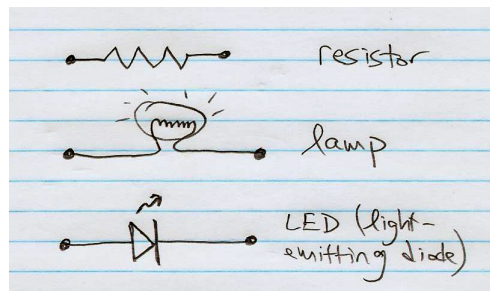 resistor
lamp
LED (light-
emitting diode)